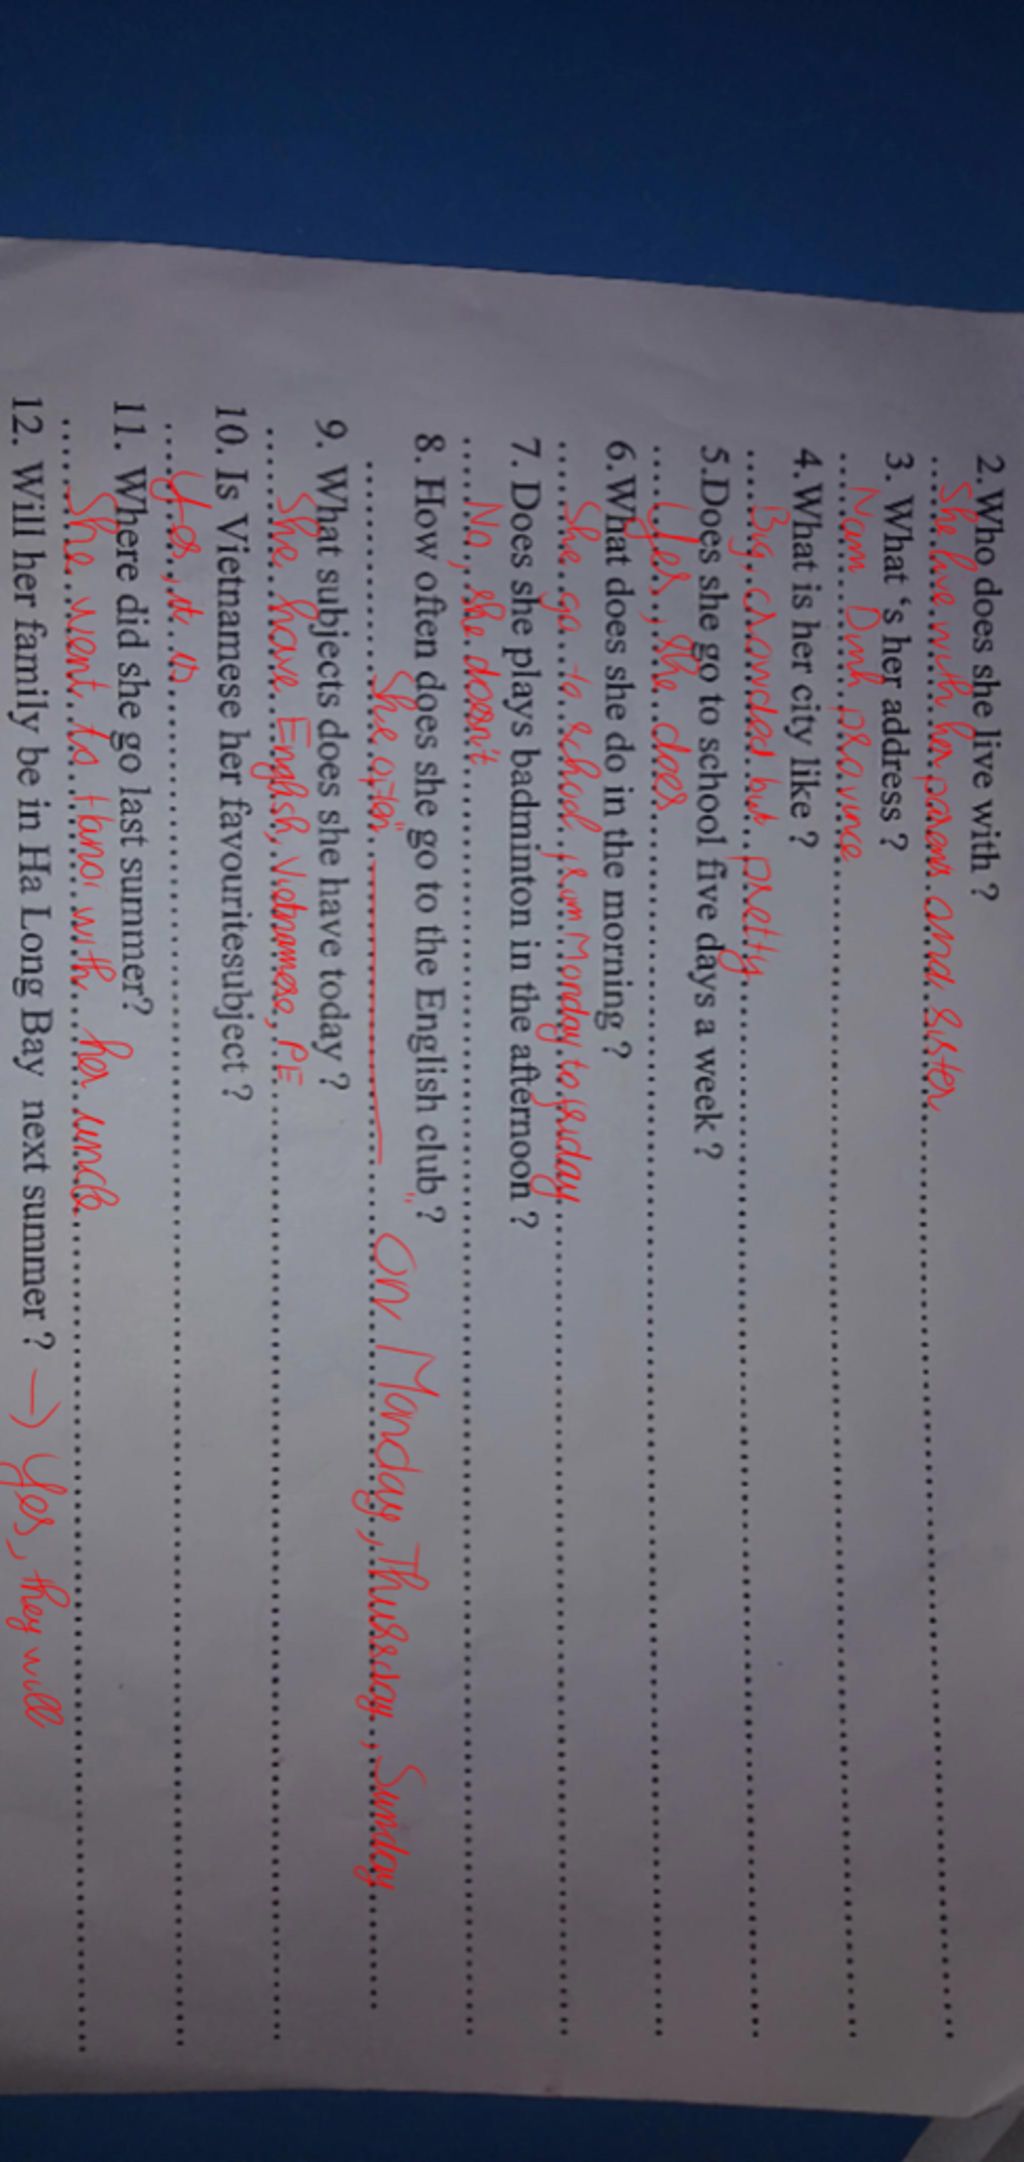 2.Who does she live with ?
She live with her parent and sister
3. What 's her address ?
Nam Dinh province
4.What is her city like ?
Big, crowded but pretty
5.Does she go to school five days a week ?
Yes, she does
6.What does she do in the morning ?
She go to school, from Monday to friday
7. Does she plays badminton in the afternoon ?
No, she doesn't
8. How often does she go to the English club" ?
She often" on Monday, Thursday, Sunday
9. What subjects does she have today ?
She have English, Vietnamese, PE
10. Is Vietnamese her favouritesubject ?
Yes, it is
11. Where did she go last summer?
She went to Hanoi with her uncle
12. Will her family be in Ha Long Bay next summer ? → Yes, they will